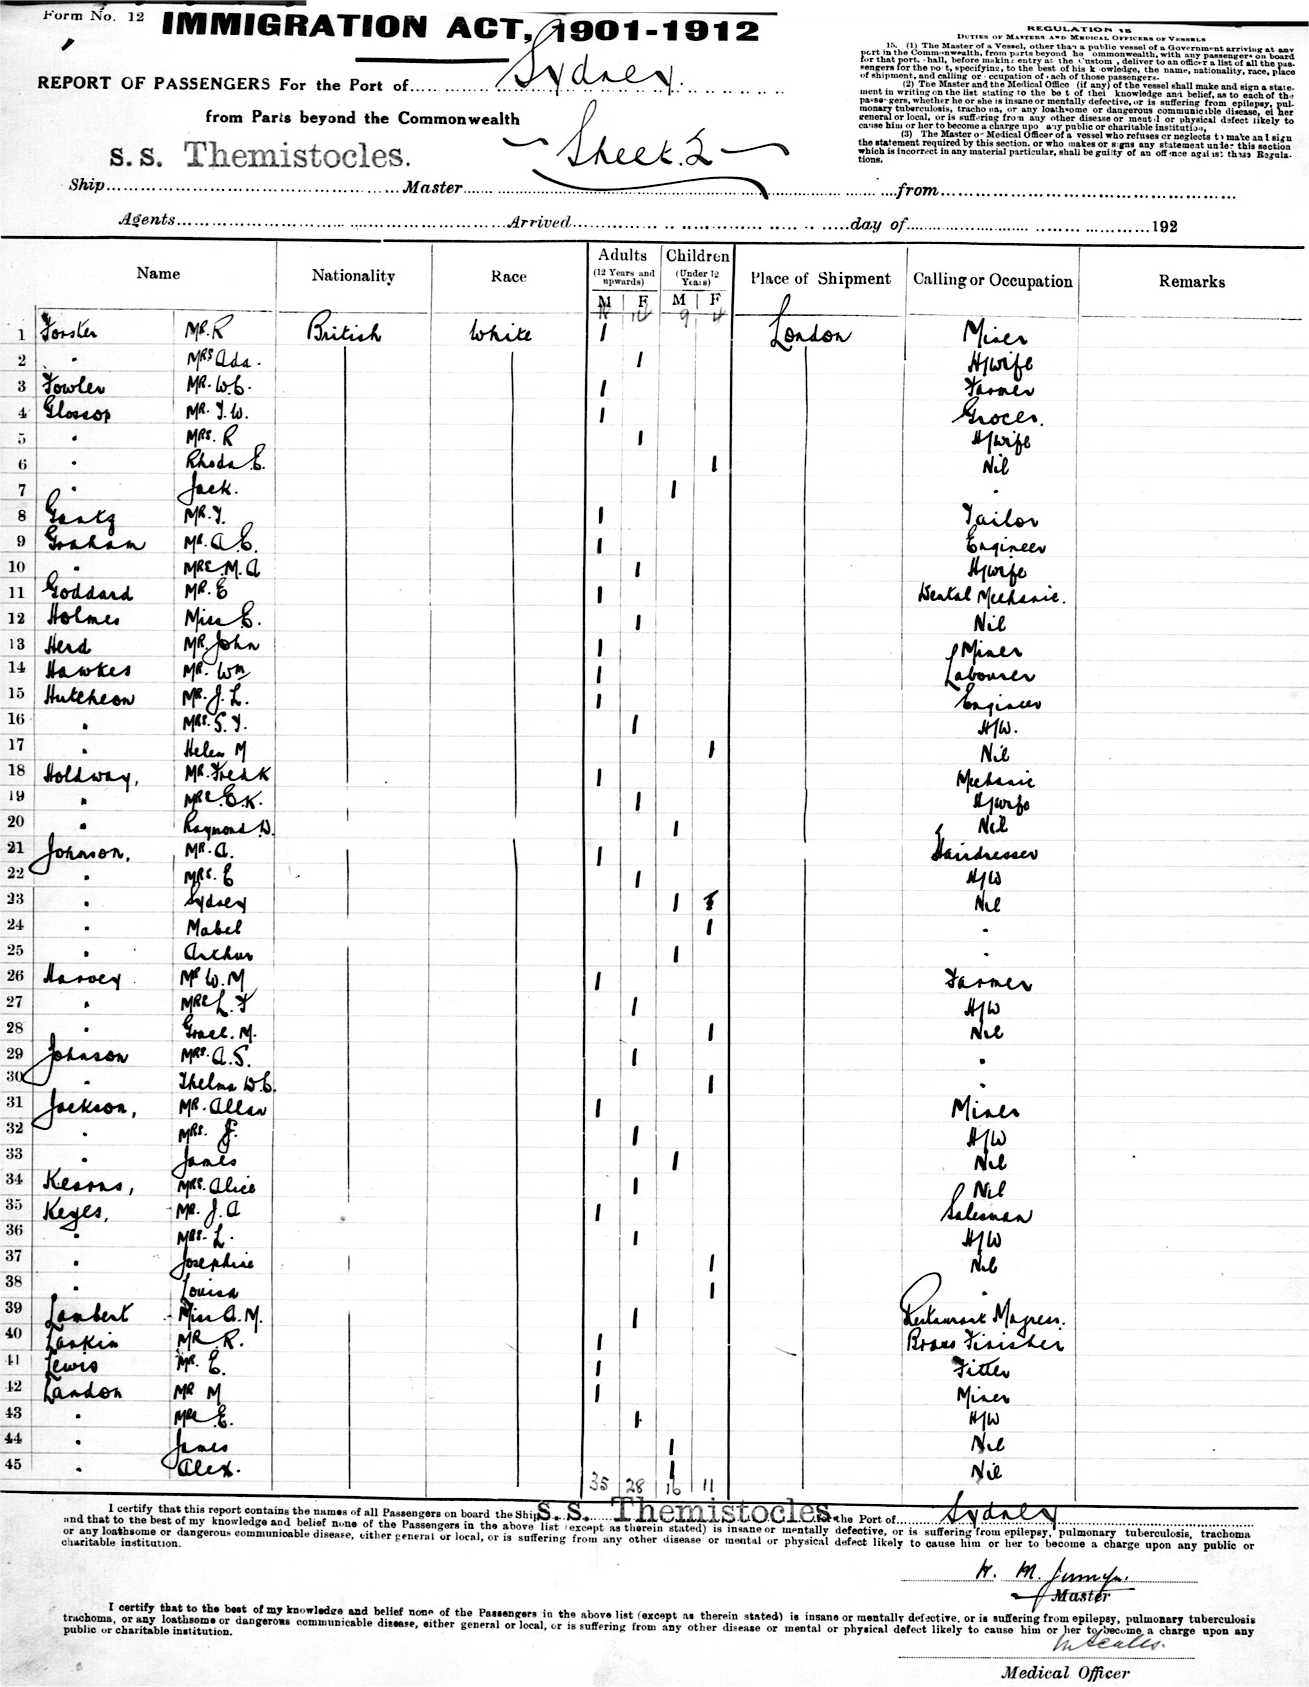 Form No. 12
IMMIGRATION ACT, 1901-1912
REPORT OF PASSENGERS For the Port of Sydney.
from Parts beyond the Commonwealth
S.S. Themistocles.
Sheet. 2
REGULATION 15
DUTIES OF MASTERS AND MEDICAL OFFICERS OF VESSELS
15. (1) The Master of a Vessel, other than a public vessel of a Government arriving at any
port in the Commonwealth, from parts beyond he ommonwealth, with any passengers on board
for that port, hall, before making entry at the ustom, deliver to an officer a list of all the pas-
sengers for the po t, specifying, to the best of his k owledge, the name, nationality, race, place
of shipment, and calling or ccupation of each of those passengers.
(2) The Master and the Medical Office (if any) of the vessel shall make and sign a state-
ment in writing on the list stating to the be t of thei knowledge and belief, as to each of the
passe gers, whether he or she is insane or mentally defective, or is suffering from epilepsy, pul-
monary tuberculosis, tracho a, or any loathsome or dangerous communicable disease, ei her
general or local, or is suffering from any other disease or mental or physical defect likely to
cause him or her to become a charge upo any public or charitable institution.
(3) The Master or Medical Officer of a vessel who refuses or neglects to make and sign
the statement required by this section, or who makes or signs any statement under this section
which is incorrect in any material particular, shall be guilty of an offence against these Regula-
tions.
Ship Master from
Agents Arrived day of 192
Name Nationality Race Adults (12 Years and upwards) M F Children (Under 12 Years) M F Place of Shipment Calling or Occupation Remarks
1 Forster MR. R British White 1 London Miner
2 " MRS Ada. 1 H/wife
3 Fowler MR. W.C. 1 Farmer
4 Glossop MR. T.W. 1 Grocer.
5 " MRS. R 1 H/wife
6 " Rhoda E. 1 Nil
7 " Jack. 1 "
8 Gantz MR. T. 1 Tailor
9 Graham MR. A E. 1 Engineer
10 " MRS. M. A 1 H/wife
11 Goddard MR. E 1 Dental Mechanic.
12 Holmes Miss E. 1 Nil
13 Herd MR. John 1 Miner
14 Hawkes MR. Wm 1 Labourer
15 Hutcheon MR. J. L. 1 Engineer
16 " MRS. S. T. 1 H/W.
17 " Helen M 1 Nil
18 Holdway, MR. Frank 1 Mechanic
19 " MRS E.K. 1 H/wife
20 " Raymond W. 1 Nil
21 Johnson, MR. A. 1 Hairdresser
22 " MRS. E 1 H/W
23 " Sydney 1 Nil
24 " Mabel 1 "
25 " Arthur 1 "
26 Harvey MR W. M 1 Farmer
27 " MRS L. F 1 H/W
28 " Grace. M. 1 Nil
29 Johnson MRS. A. S. 1 "
30 " Thelma D.C. 1 "
31 Jackson, MR. Allan 1 Miner
32 " MRS. J. 1 H/W
33 " James 1 Nil
34 Kearns, MRS. Alice 1 Nil
35 Keyes, MR. J. A 1 Salesman
36 " MRS. L. 1 H/W
37 " Josephine 1 Nil
38 " Louisa 1 "
39 Lambert Miss A. M. 1 Restaurant Magress.
40 Larkin MR R. 1 Brass Finisher
41 Lewis MR. E. 1 Fitter
42 Landon MR M 1 Miner
43 " MRS E. 1 H/W
44 " James 1 Nil
45 " Alex. 1 Nil
35 28 16 11
I certify that this report contains the names of all Passengers on board the Ship S. S. Themistocles. for the Port of Sydney
and that to the best of my knowledge and belief none of the Passengers in the above list (except as therein stated) is insane or mentally defective, or is suffering from epilepsy, pulmonary tuberculosis, trachoma
or any loathsome or dangerous communicable disease, either general or local, or is suffering from any other disease or mental or physical defect likely to cause him or her to become a charge upon any public or
charitable institution.
Master
I certify that to the best of my knowledge and belief none of the Passengers in the above list (except as therein stated) is insane or mentally defective, or is suffering from epilepsy, pulmonary tuberculosis
trachoma, or any loathsome or dangerous communicable disease, either general or local, or is suffering from any other disease or mental or physical defect likely to cause him or her to become a charge upon any
public or charitable institution.
Medical Officer